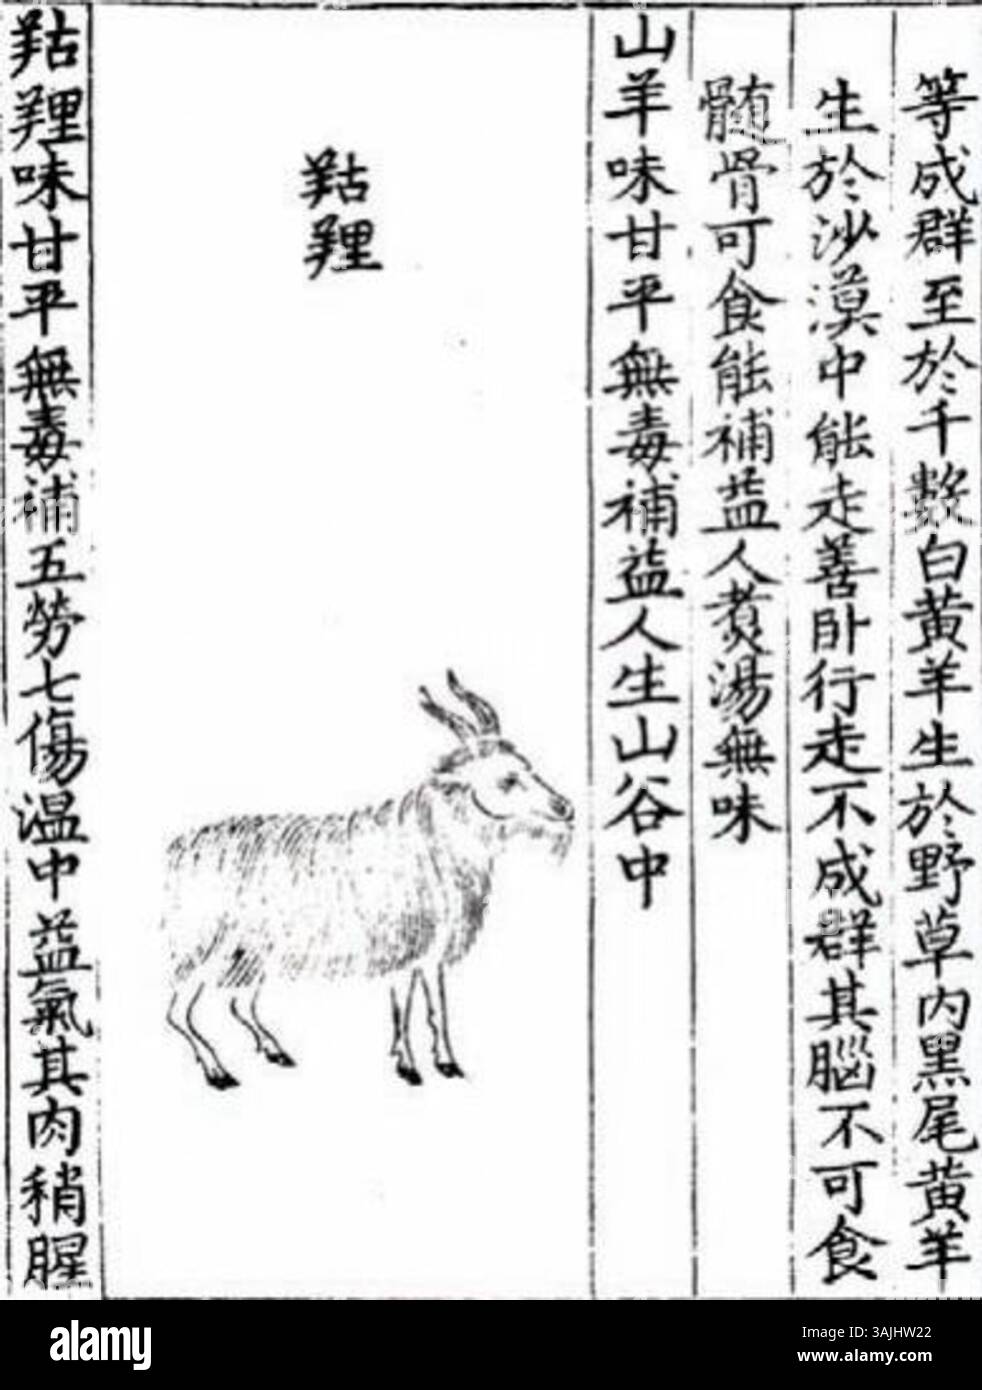 等成群至於千數白黄羊生於野草内黒尾黄羊
生於沙漠中能走善卧行走不成群其腦不可食
髓骨可食能補益人煑湯無味
山羊味甘平無毒補益人生山谷中
羖䍽
羖䍽味甘平無毒補五勞七傷温中益氣其肉稍腥
alamy
Image ID: 3AJHW22
www.alamy.com